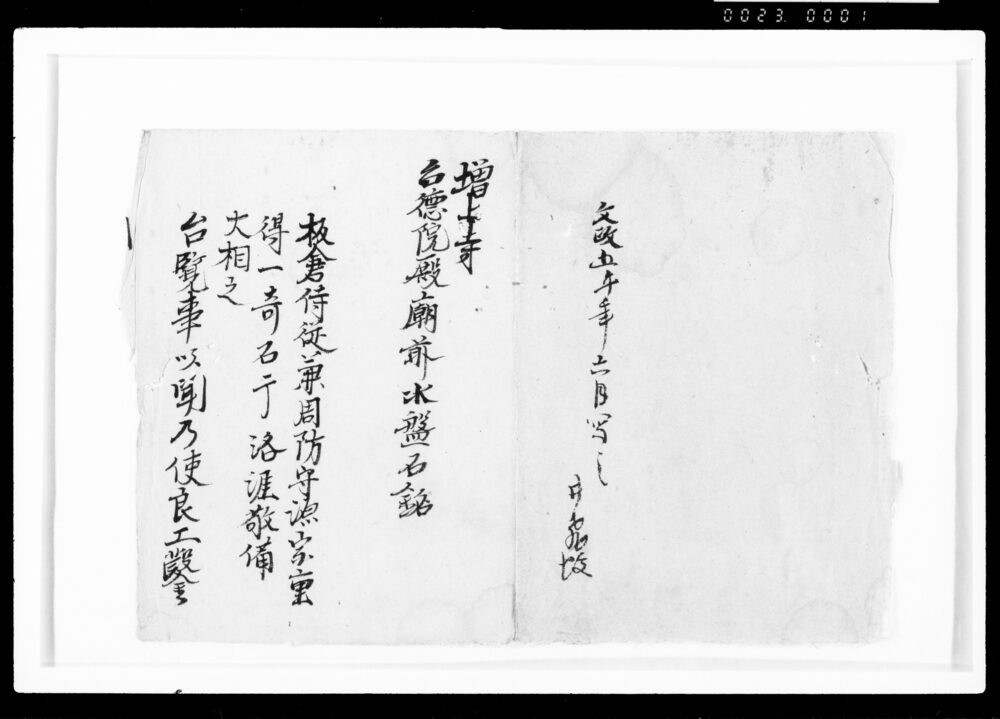 0023.0001
文政五午年六月写之
増上寺
台德院殿廟前水盤石銘
板倉侍従兼周防守源宗重
得一奇石于洛涯敬備
大相之
台覧事以聞乃使良工鑿